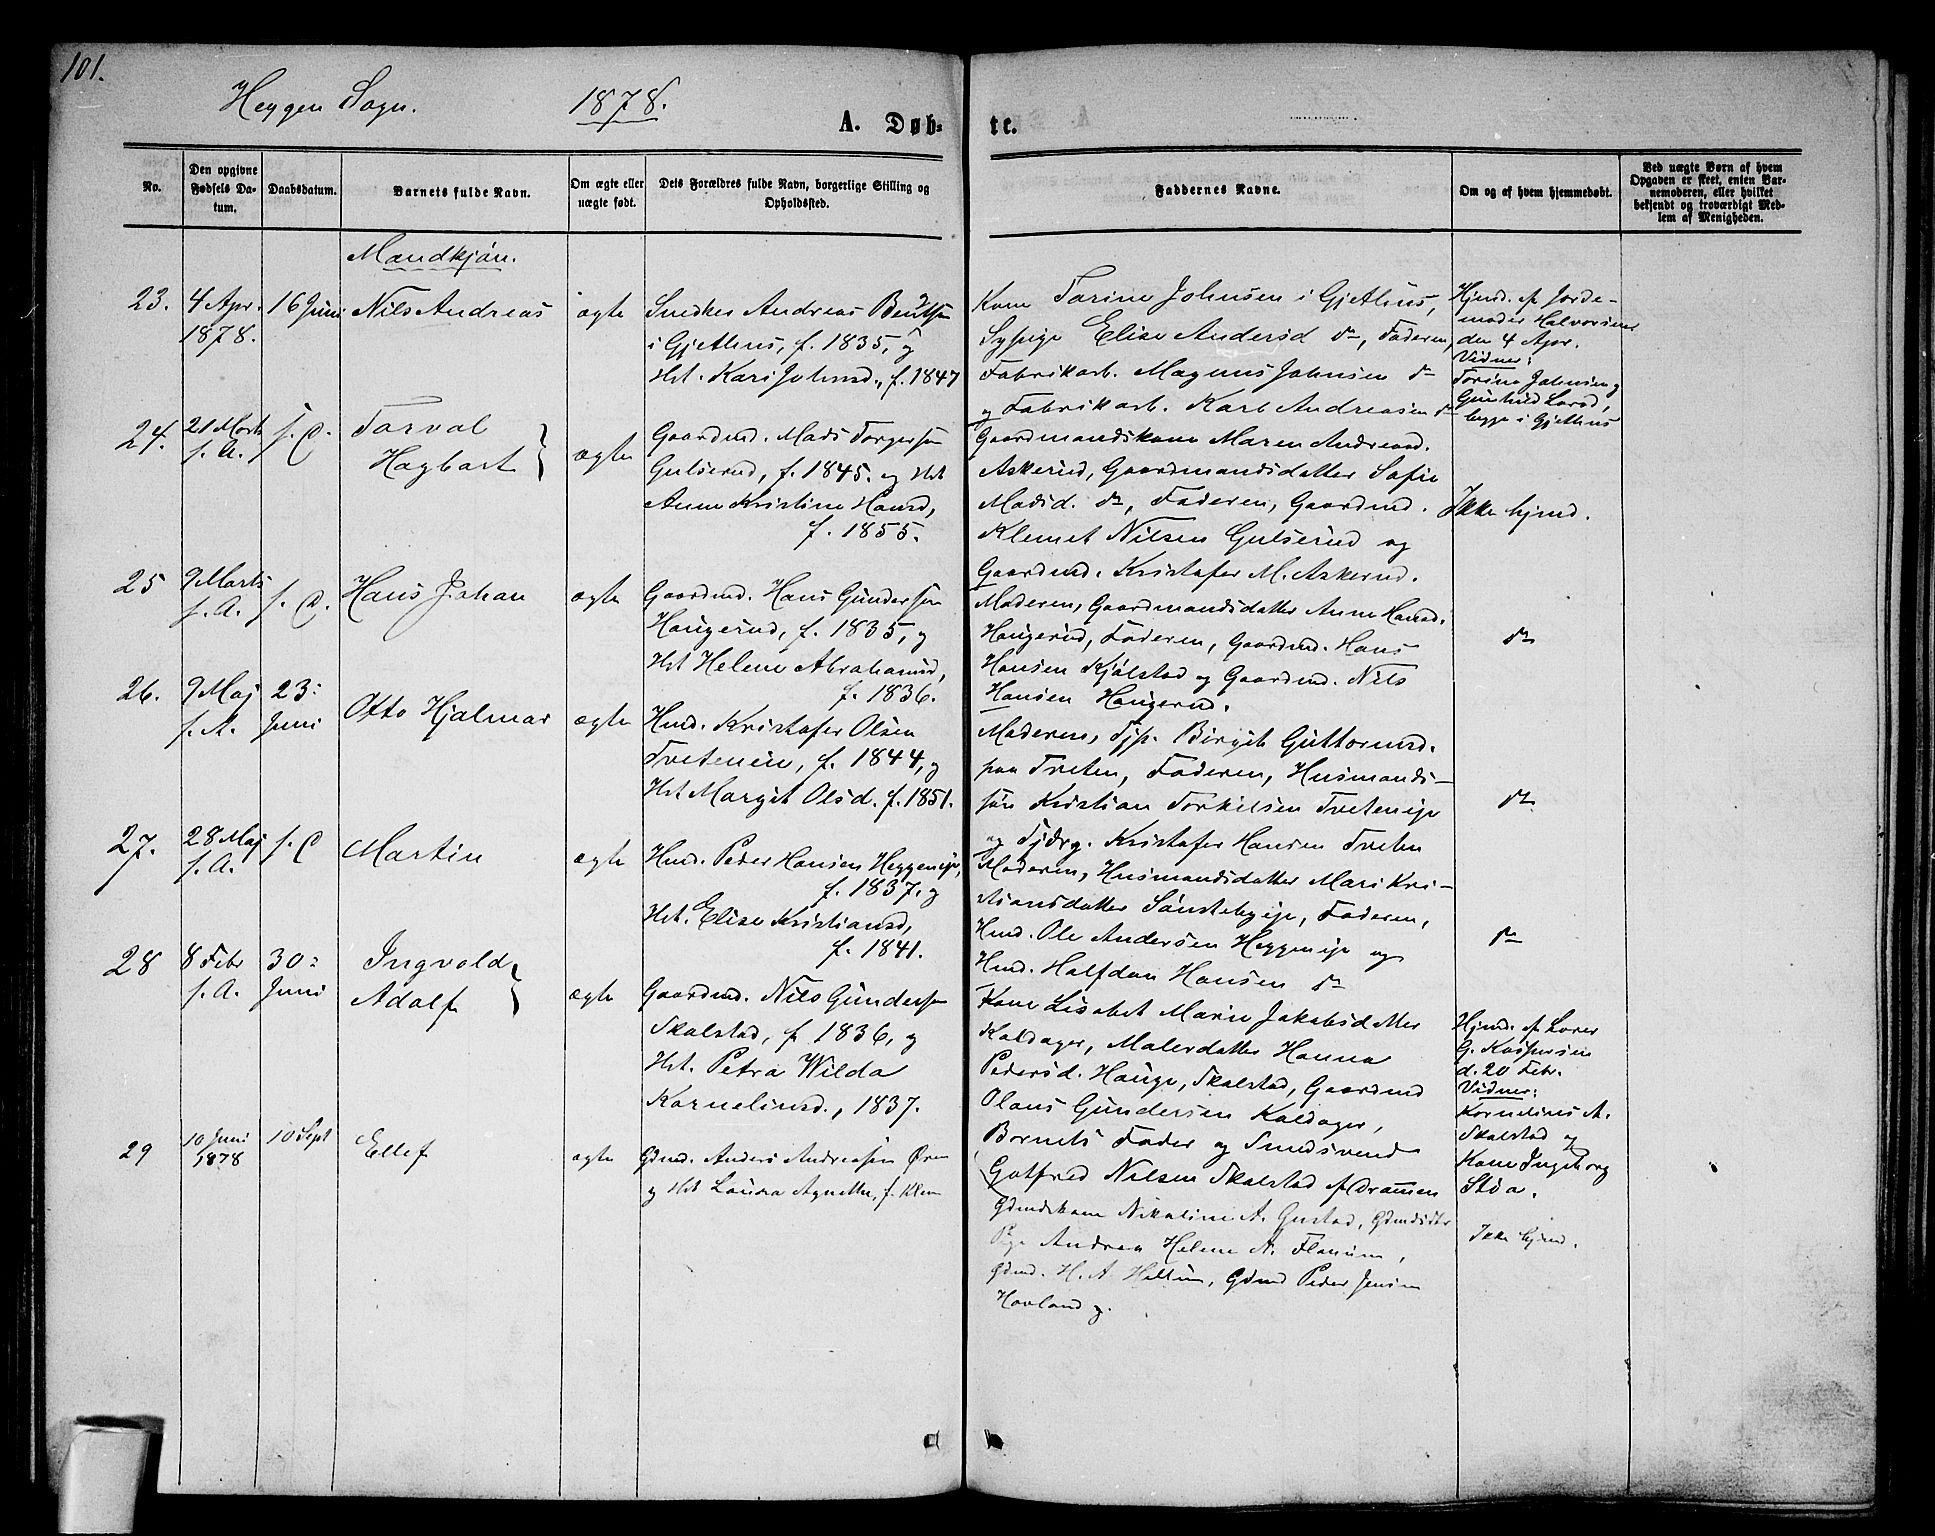 101.
Heggen Sogn. 1878.
A. Døb- te.
No.
Den opgivne Fødsels Da- tum.
Daabsdatum.
Barnets fulde Navn.
Om ægte eller uægte født.
Dets Forældres fulde Navn, borgerlige Stilling og Opholdssted.
Faddernes Navne.
Om og af hvem hjemmedøbt.
Ved uægte Børn af hvem Opgaven er skeet, enten Bar- nemoderen, eller hvilket bekjendt og troværdigt Med- lem af Menigheden.
Mandkjön.
23.
4 Apr.
1878.
16 Juni
Nils Andreas
ægte
Snedker Andreas Bentsen
i Gjethus, f. 1835, og
Hst. Kari Johnsd., f. 1847
Kone Torine Johnsen i Gjethus,
Sypige Elise Andersd do, Faderen,
Fabrikarb. Magnus Johnsen do
og Fabrikarb. Karl Andreasen do
Hjmd. af Jorde-
moder Halvorsen
den 4 Apr.
Vidner:
Torine Johnsen og
begge i Gjethus
24.
21 Marts
s. A.
s. D.
Torval
Hagbart
ægte
Gaardmd. Mads Torgersen
Gulserud, f. 1845. og Hst
Anne Kristine Hansd,
f. 1855.
Gaardmandskone Maren Andreasd.
Askerud, Gaardmandsdatter Sofie
Madsd. do, Faderen, Gaardmd.
Klemet Nilsen Gulserud og
Gaardmd. Kristofer M. Askerud.
Ikke hjmd.
25
9 Marts
s. A.
s. D.
Hans Johan
ægte
Gaardmd. Hans Gundersen
Haugerud, f. 1835, og
Hst Helene Abrahamsd,
f. 1836.
Moderen, Gaardmandsdatter Anne Hansd.
Haugerud, Faderen, Gaardmd. Hans
Hansen Kjölstad og Gaardmd. Nils
Hansen Haugerud.
do
26.
9 Maj
s. A.
23:
Juni
Otto Hjalmar
ægte
Hmd. Kristofer Olsen
Tveteneie, f. 1844, og
Hst Margit Olsd. f. 1851.
Moderen, Tjp. Birgit Guttormsd.
paa Tveten, Faderen, Husmands-
sön Kristian Torkilsen Tveteneje
og Tjdrg. Kristofer Hansen Tveten
do
27.
28 Maj
s. A.
s. D
Martin
ægte
Hmd. Peder Hansen Heggeneje,
f. 1837. og
Hst. Elise Kristiansd,
f. 1841.
Moderen, Husmandsdatter Mari Kri-
stiansdatter Sönstebyeje, Faderen,
Hmd. Ole Andersen Heggeneje og
Hmd. Halfdan Hansen do
do
28
8 Febr
s. A.
30:
Juni
Ingvald
Adolf
ægte
Gaardmd. Nils Gundersen
Skalstad, f. 1836, og
Hst. Petra Wilda
Korneliusd., 1837.
Kone Lisabet Marie Jakobsdatter
Kaldager, Malerdatter Hanna
Pedersd. Hauge, Skalstad, Gaardmd
Olaus Gundersen Kaldager,
Barnets Fader og Smedsvend
Gotfred Nilsen Skalstad af Dramen
Hjmd. af Lærer
G. Kaspersen
d. 20 Febr.
Vidner:
Kornelius A.
Skalstad og
Kone Ingeborg
Stöa.
29
10 Juni
1878
10 Sept
Ellef
ægte
Gdmd. Anders Andreasen Øren
og Hst Laura Agnethe, f. Klem
Gdmdskone Nikoline A. Gustad, Gdmdsdtr
Pige Andrea Helene N. Flannum,
Gdmd. H. A. Hellum, Gdmd Peder Jensen
Hovland og.
Ikke hjmd.